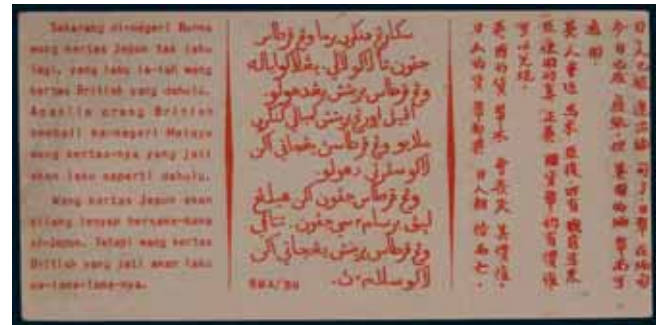 Sekarang di-negeri Burma
wang kertas Jepun tak laku
lagi, yang laku ia-lah wang
kertas British yang dahulu.
Apabila orang British
kembali ka-negeri Melayu
wang kertas-nya yang jati
akan laku seperti dahulu.
Wang kertas Jepun akan
hilang lenyap bersama-sama
si-Jepun. Tetapi wang kertas
British yang jati akan laku
sa-lama-lama-nya.
سکارڠ دنڬري برما وڠ قرطاس
جڤون تا لاکو لاڬي. يڠ لاکو ياله
وڠ قرطاس برتش يڠ دهولو
اڤبيل اورڠ برتش کمبالي کنڬري
ملايو وڠ قرطاسڽ يڠ جاتي اکن
لاکو سڤرتي دهولو.
وڠ قرطاس جڤون اکن هيلڠ
لڽڤ برسام٢ سي جڤون. تتاڤي
وڠ قرطاس برتش يڠ جاتي اکن
لاکو سلام٢ڽ.
日人已經逐出緬甸了日幣在緬甸
今日已成廢紙,英國的緬幣尚可
通用
英人重返馬來亞後所有戰前馬來
亞使用的真正英國貨幣仍有價值
可以兌現.
英國的貨幣永會長久其價值,
日人的貨幣却與日人而亡.